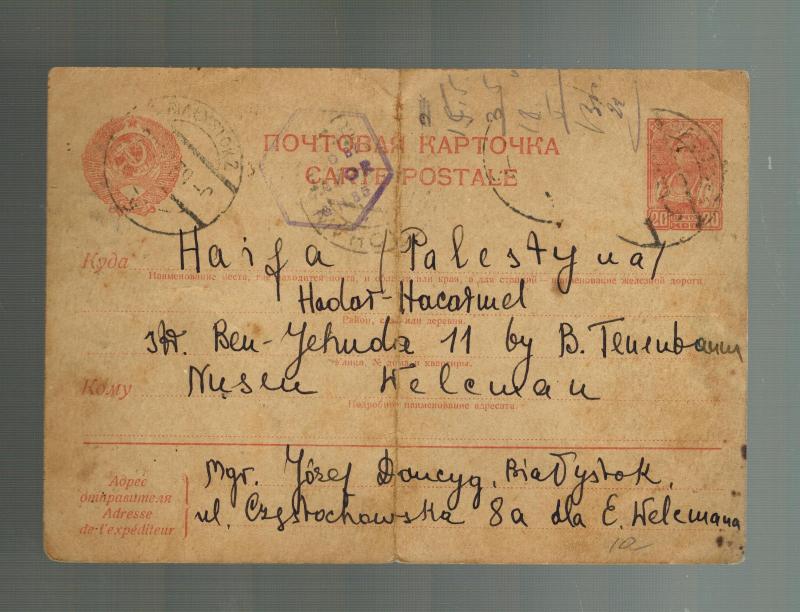 ПОЧТОВАЯ КАРТОЧКА
CARTE POSTALE
20 20
Куда Haifa /Palestyna/
Наименование места, где находится почта, и области или края, а для станций – наименование железной дороги
Hadar-Hacarmel
Район, село или деревня.
str. Ben-Jehuda 11 by B. Tenenbaum
Улица, № дома и квартиры.
Кому Nusen Welcman
Подробное наименование адресата.
Адрес отправителя
Adresse de l'expéditeur
Mgr. Józef Dancyg, Białystok,
ul. Częstochowska 8a dla E. Welcmana
10-